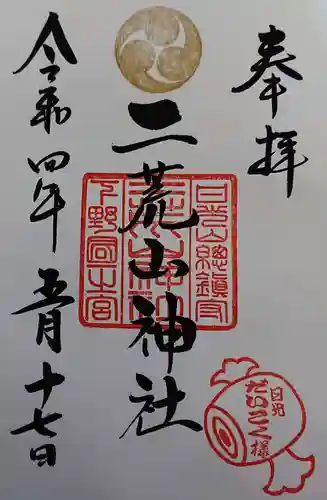 奉拝
二荒山神社
令和四年五月十七日
日光山総鎮守
下野國一之宮
日光
だいこく様